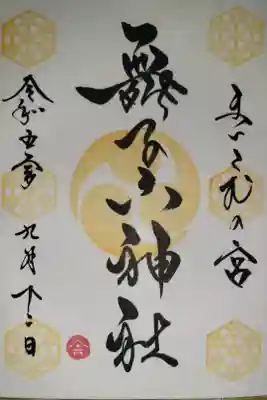 まいこむの宮
舞子六神社
令和五年 九月十二日